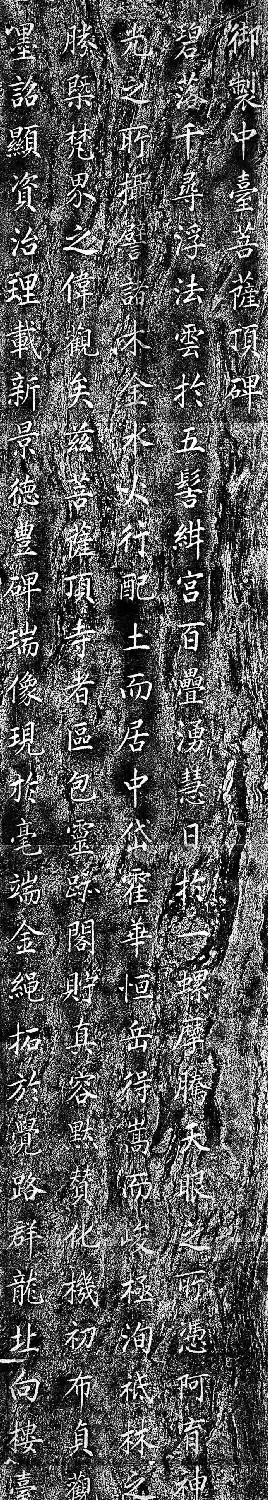 御製中臺菩薩頂碑
碧落千尋浮法雲於五髻紺宮百疊湧慧日於一螺摩騰天眼之所憑阿育神
光之所攝譬諸木金水火行配土而居中岱霍華恒岳得嵩而峻極洵祇林之
勝槩梵界之偉觀矣茲菩薩頂寺者區包靈跡閣貯真容默贊化機初布貞觀
墨詔顯資治理載新景德豐碑瑞像現於毫端金繩拓於覺路群龍北向樓臺